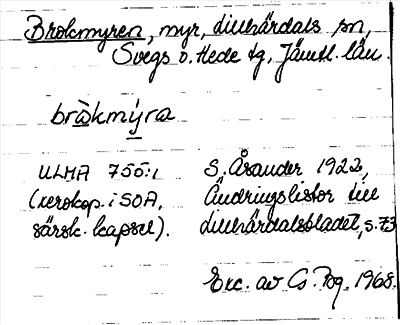 Brokmyren, myr, Linsells sn,
Svegs o. Hede tg, Jämtl. län.
bròkmýra
ULMA 755:1
(xerokop. i SOA,
särsk. kapsel).
S. Åsander 1922,
Ändringslistor till
Linsellsbladet, s. 73
Exc. av
1968.